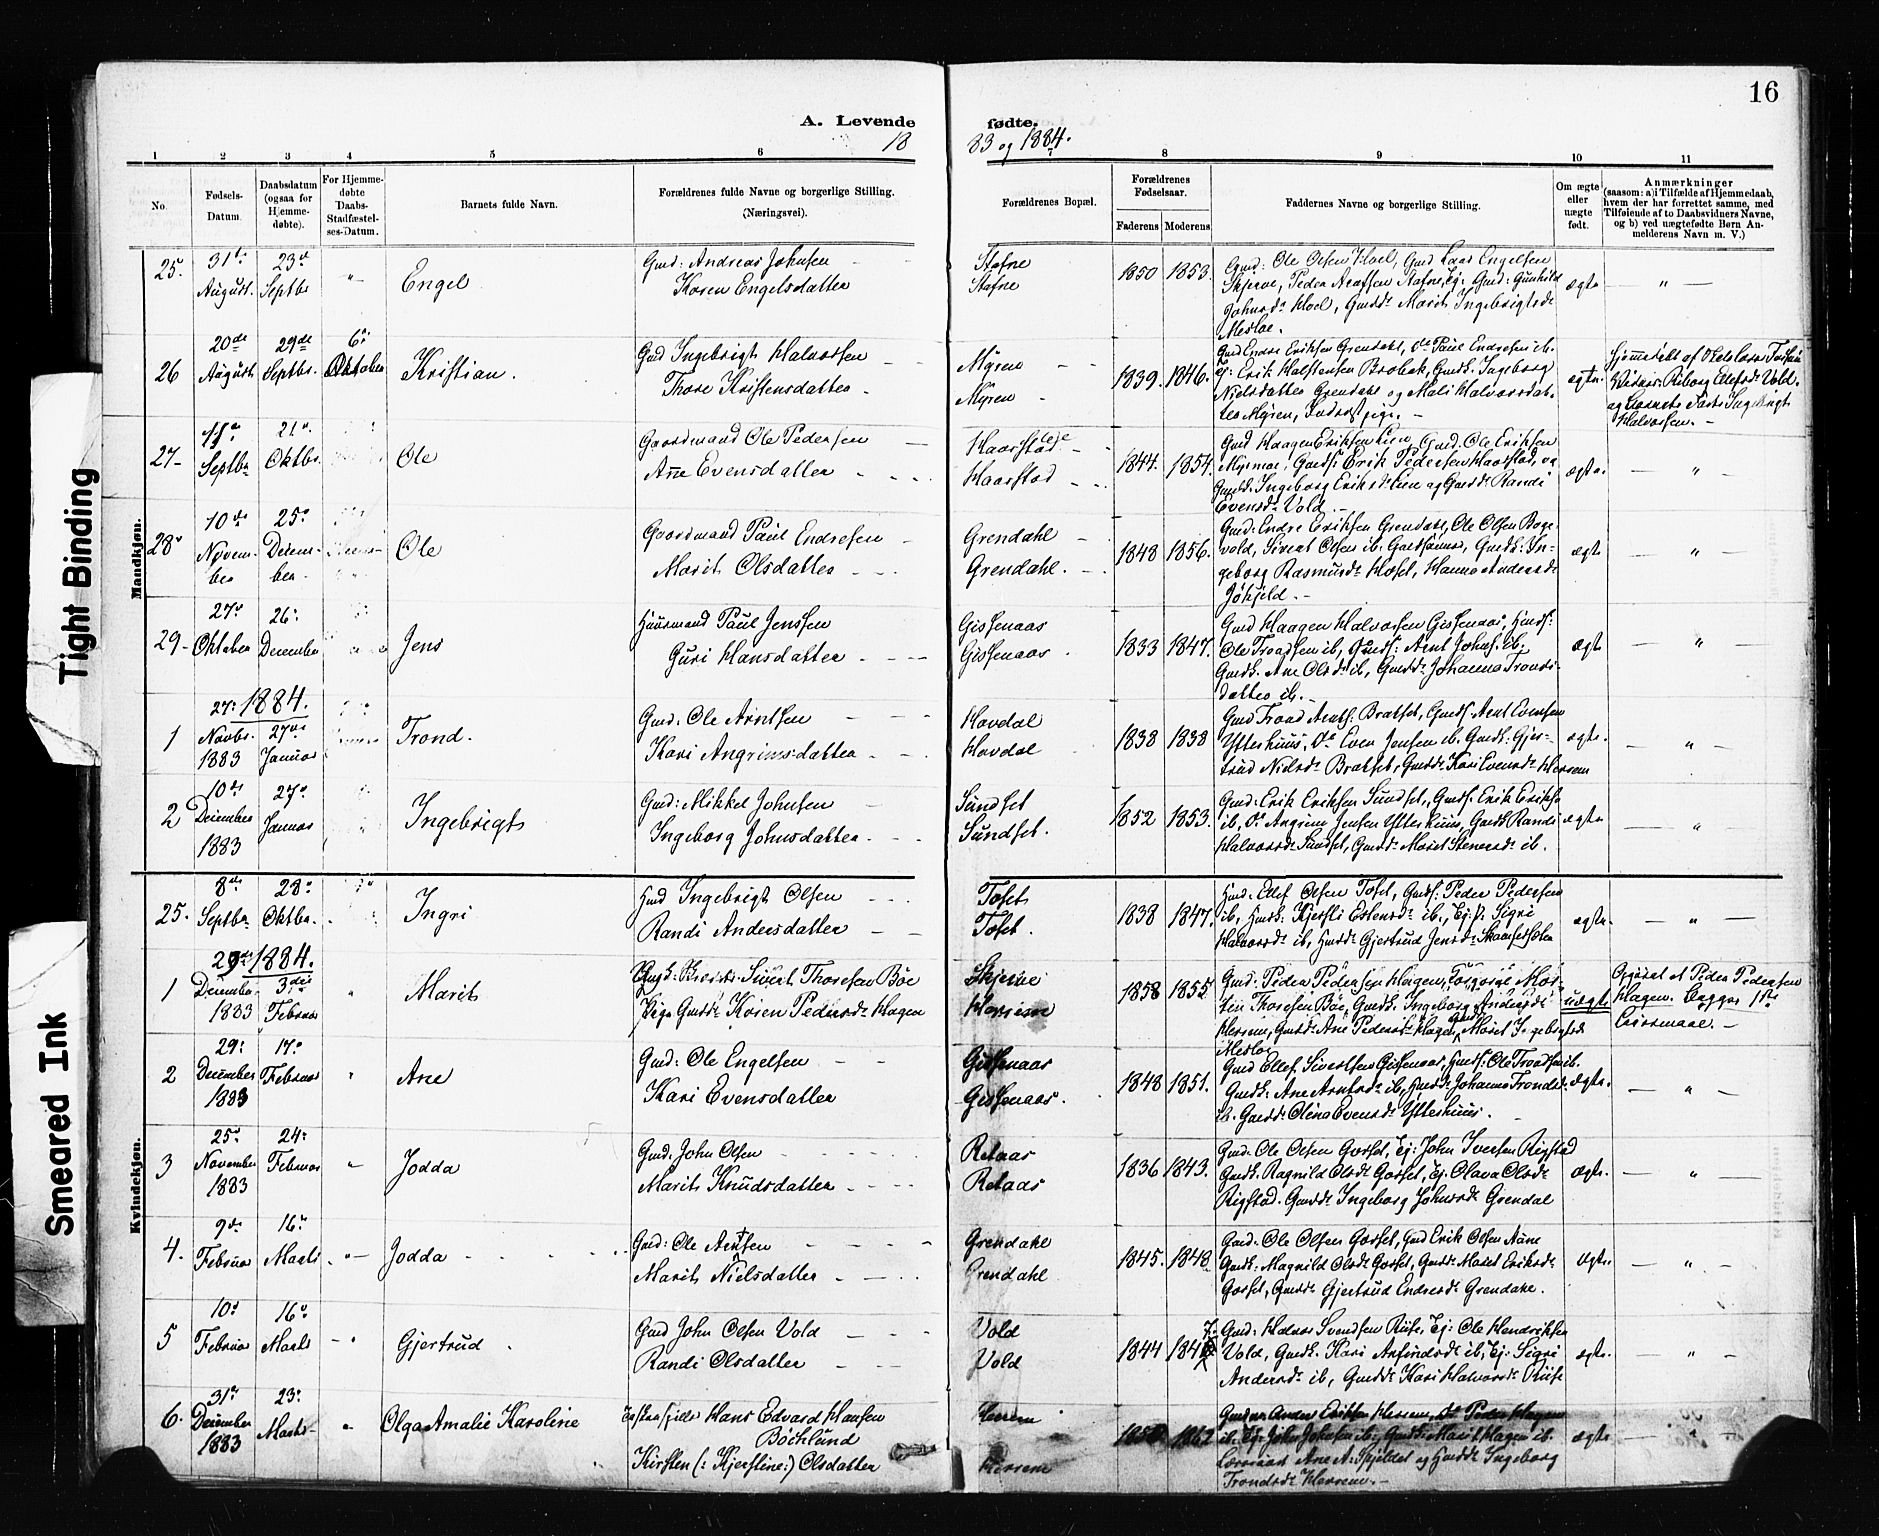 16
A. Levende
fødte.
18
83 og 1884.
1 2 3 4 5 6 7 8 9 10 11
No.
Fødsels-
Datum.
Daabsdatum
(ogsaa for
Hjemme-
døbte).
For Hjemme-
døbte
Daabs-
Stadfæstel-
ses-Datum.
Barnets fulde Navn.
Forældrenes fulde Navne og borgerlige Stilling.
(Næringsvei).
Forældrenes Bopæl.
Forældrenes
Fødselsaar.
Faderens
Moderens
Faddernes Navne og borgerlige Stilling.
Om ægte
eller
uægte
født.
Anmærkninger
(saasom: a) i Tilfælde af Hjemmedaab,
hvem der har forrettet samme, med
Tilføiende af to Daabsvidners Navne,
og b) ved uægtefødte Børn An-
melderens Navn m. V.)
Mandkjøn.
25.
31te
August.
23de
Septbr
Engel
Gmd: Andreas Johnsen
Karen Engelsdatter
Stafne
Stafne
1850 1853.
Gmd: Ole Olsen Hoel, Gmd Lars Engelsen
ægte
26
20de
August
29de
Septbr.
6te
Oktober
Kristian.
Gmd Ingebrigt Halvorsen
Thore Kristensdatter
Myren
Myren
1839. 1846.
Gmd Endre Eriksen Grendahl, Do Paul Endresen ib.
Ej: Erik Halstensen Brobak, Gmdk. Ingeborg
Nielsdatter Grendahl og Mali Halvorsdat-
ter Myren,
ægte.
Halvorsen.
27
11te
Septbr
21de
Oktbr.
Ole
Gaardmand Ole Pedersen
Ane Evensdatter
Haarstad
Haarstad
1844. 1854.
Gmd Haagen Eriksen Lien, Gmd. Ole Eriksen
Myrmoe, Gmds. Erik Pedersen Haarstad,
Gmdk. Ingeborg Eriksdr Lien og Gmdd. Randi
Evensdr Vold.
ægte.
28
10de
Novem-
ber
25de
Decem-
ber.
Ole
Gaardmand Paul Endresen
Marit Olsdatter
Grendahl
Grendahl.
1848 1856.
Gmd: Endre Eriksen Grendahl, Ole Olsen Boge-
vold, Sivert Olsen ib. Gaardsønner, Gmdk: In-
geborg Rasmusdr Hoset, Hanna Andersdr
Jøkjeld.
ægte
29
27de
Oktober
26de
December
Jens
Huusmand Paul Jenssen
Guri Hansdatter
Gissenaas
Gissenaas
1833 1847.
Gmd Haagen Halvorsen Gissenaas,
Ole Trondsen ib, Gmds: Arnt Johns. ib.
Gmdk. Ane Olsdr ib, Gmdd. Johanna Tronds-
datter ib.
ægte
1884.
1
27de
Novbr.
1883
27de
Januar
Trond.
Gmd: Ole Arntsen
Kari Angrimsdatter
Havdal
Havdal
1838 1838
Gmd Trond Arnts. Bratset, Gmds. Arnt Evensen
Ytterhuus, Do Even Jensen ib. Gmdk: Gjer-
trud Nielsdr Bratset, Gmdd. Kari Evensdr Herrem
ægte.
2
10de
December
1883
27de
Januar
Ingebrigt
Gmd: Mikkel Johnsen
Ingeborg Johnsdatter
Sundset
Sundset.
1852 1853.
Gmd: Erik Eriksen Sundset, Gmds. Erik Eriks.
ib, Do Angrim Jensen Ytterhuus, Gmdk Randi
Halvorsdr Sundset, Gmdd. Marit Stenersdr ib.
ægte
Kvindekjøn.
25.
8de
Septbr
28de
Oktbr.
Ingri
Hmd Ingebrigt Olsen
Randi Andersdatter
Toset
Toset.
1838 1847.
Hmd. Ellef Olsen Toset, Gmds: Peder Pedersen
ib, Hmdk: Kjersti Estensdr ib., Ej. p. Sigri
Halvorsdr ib, Hmdd. Gjertrud Jensdr
ægte.
1884.
1
29de
December
1883
3die
Februar
Marit
Sivert Thoresen Bøe
Pige Gmdd: Karen Pedersdr Hagen
Skjerve
Herrem
1858 1855
Gmd: Peder Pedersen Hagen,
Thoresen Bøe, Gmdk. Ingeborg Andersdr
Herrem, Gmdd. Ane Pedersdr Hagen, Marit Ingebrigtsdr
Mesloe
uægte
Opgivet af Peder Pedersen
Hagen. Begges 1ste
Leiermaal.
2
29de
December
1883
17de
Februar
Ane
Gmd: Ole Engelsen
Kari Evensdatter
Gissenaas
Gissenaas.
1848 1851.
Gmd Ellef Sivertsen Gissenaas, Hmds: Ole Trondsen ib.
Gmdk: Ane Arntsdr ib, Hmdd. Johanna Trondsdr
ib. Gmdd. Olina Evensdr Ytterhuus.
ægte.
3
25de
November
1883
24de
Februar
Jodda
Gmd: John Olsen
Marit Knudsdatter
Retaas
Retaas
1836 1843.
Gmd: Ole Olsen Gorset, Ej: John Iversen Rigstad
Gmdk. Ragnild Olsdr Gorset, Ej: Olava Olsdr
Rigstad. Gmdd. Ingeborg Johnsdr Grendal
ægte.
4.
9de
Februar
16de
Marts
Jodda
Gmd: Ole Arntsen
Marit Nielsdatter
Grendahl
Grendahl
1845. 1848
Gmd: Ole Olsen Gorset, Gmd Erik Olsen Aune
Gmdk: Magnild Olsdr Gorset, Gmdd: Marit Eriksdr
Gorset, Gmdd. Gjertrud Endresdr Grendahl.
ægte.
5
10de
Februar
16de
Marts
Gjertrud
Gmd John Olsen Vold
Randi Olsdatter
Vold
Vold
1844 1847
Gmd: Halvor Svendsen Riise, Ej: Ole Hendriksen
Vold, Gmdk. Kari Arfindsdr ib, Ej: Sigri
Andersdr ib, Gmdd. Kari Halvorsdr Riise
ægte.
6.
31te
December
1883
23de
Marts
Olga Amalie Karoline
Hans Edvard Hansen
Bøchlund
Kirsten (: Kjerstine:) Olsdatter
Herrem
Herrem
1862
Anders Eriksen Herrem, Do Peder Hagen
ib. Ej: John Johnsen ib. Gmdk. Marit Hagen ib.
og Hmdd. Ingeborg
Trondsdr Herrem.
ægte
Tight Binding
Smeared Ink